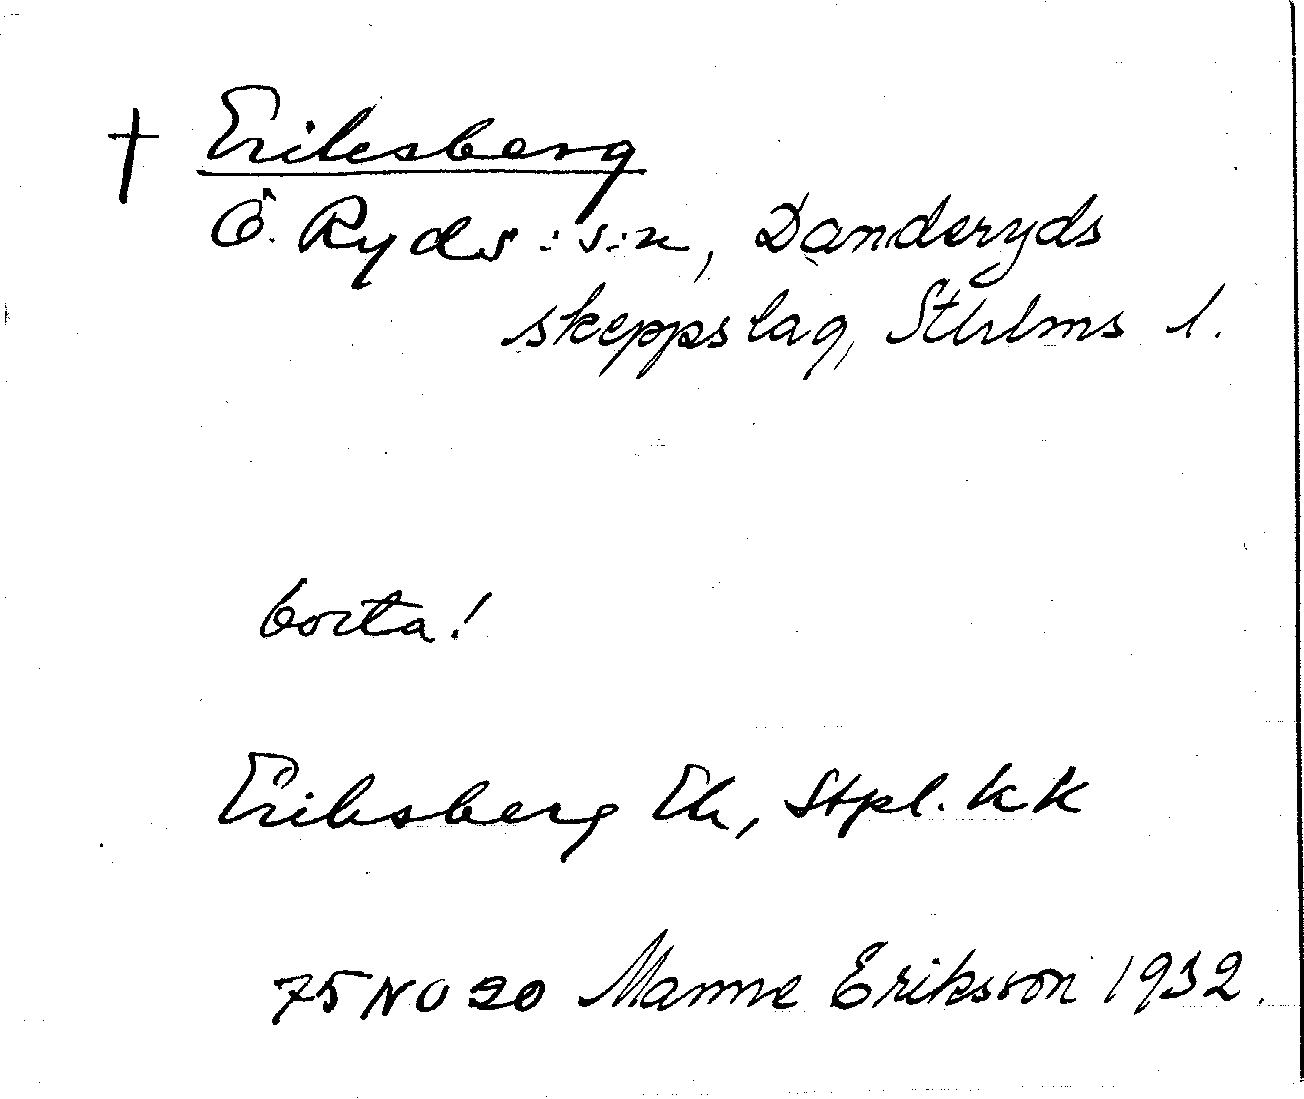 † Eriksberg
Ö. Ryds s:n, Danderyds
skeppslag, Sthlms l.
borta!
Eriksberg Ek, Stpl. KK
75 NO 20 Manne Eriksson 1932.